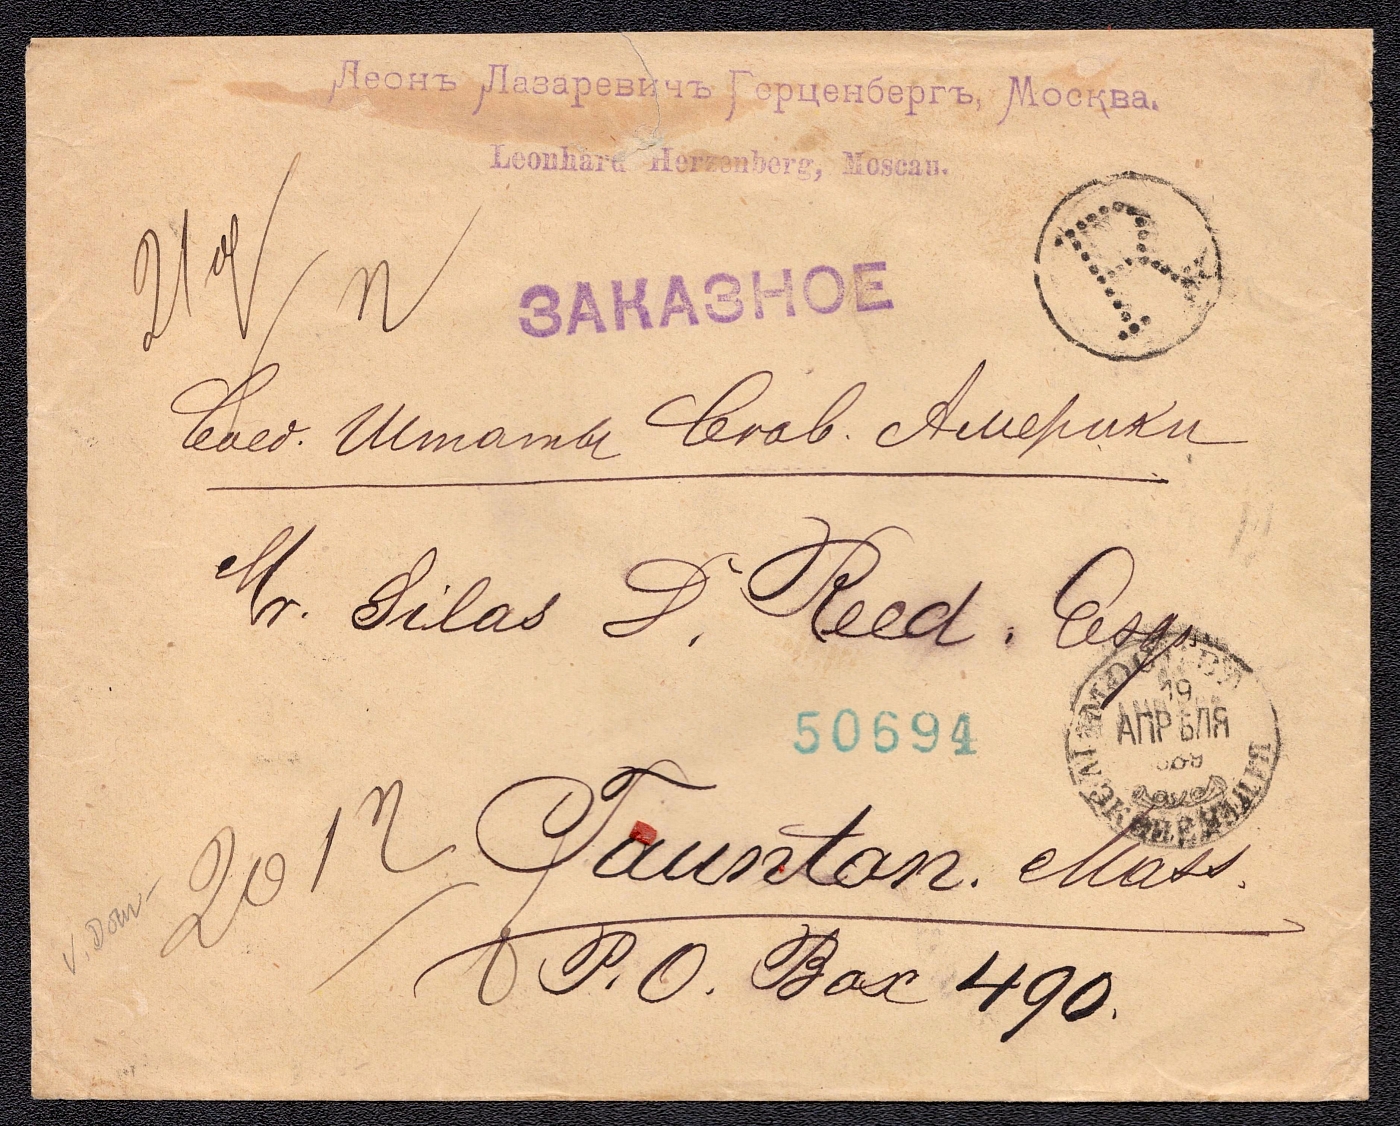 Леонъ Лазаревичъ Герценбергъ, Москва.
Leonhard Herzenberg, Moscau.
R
21
n
ЗАКАЗНОЕ
Соед. Штаты Сѣв. Америки
Mr. Silas D. Reed. Esq.
19
АПРѢЛЯ
50694
Taunton. Mass.
201
P.O. Box 490.